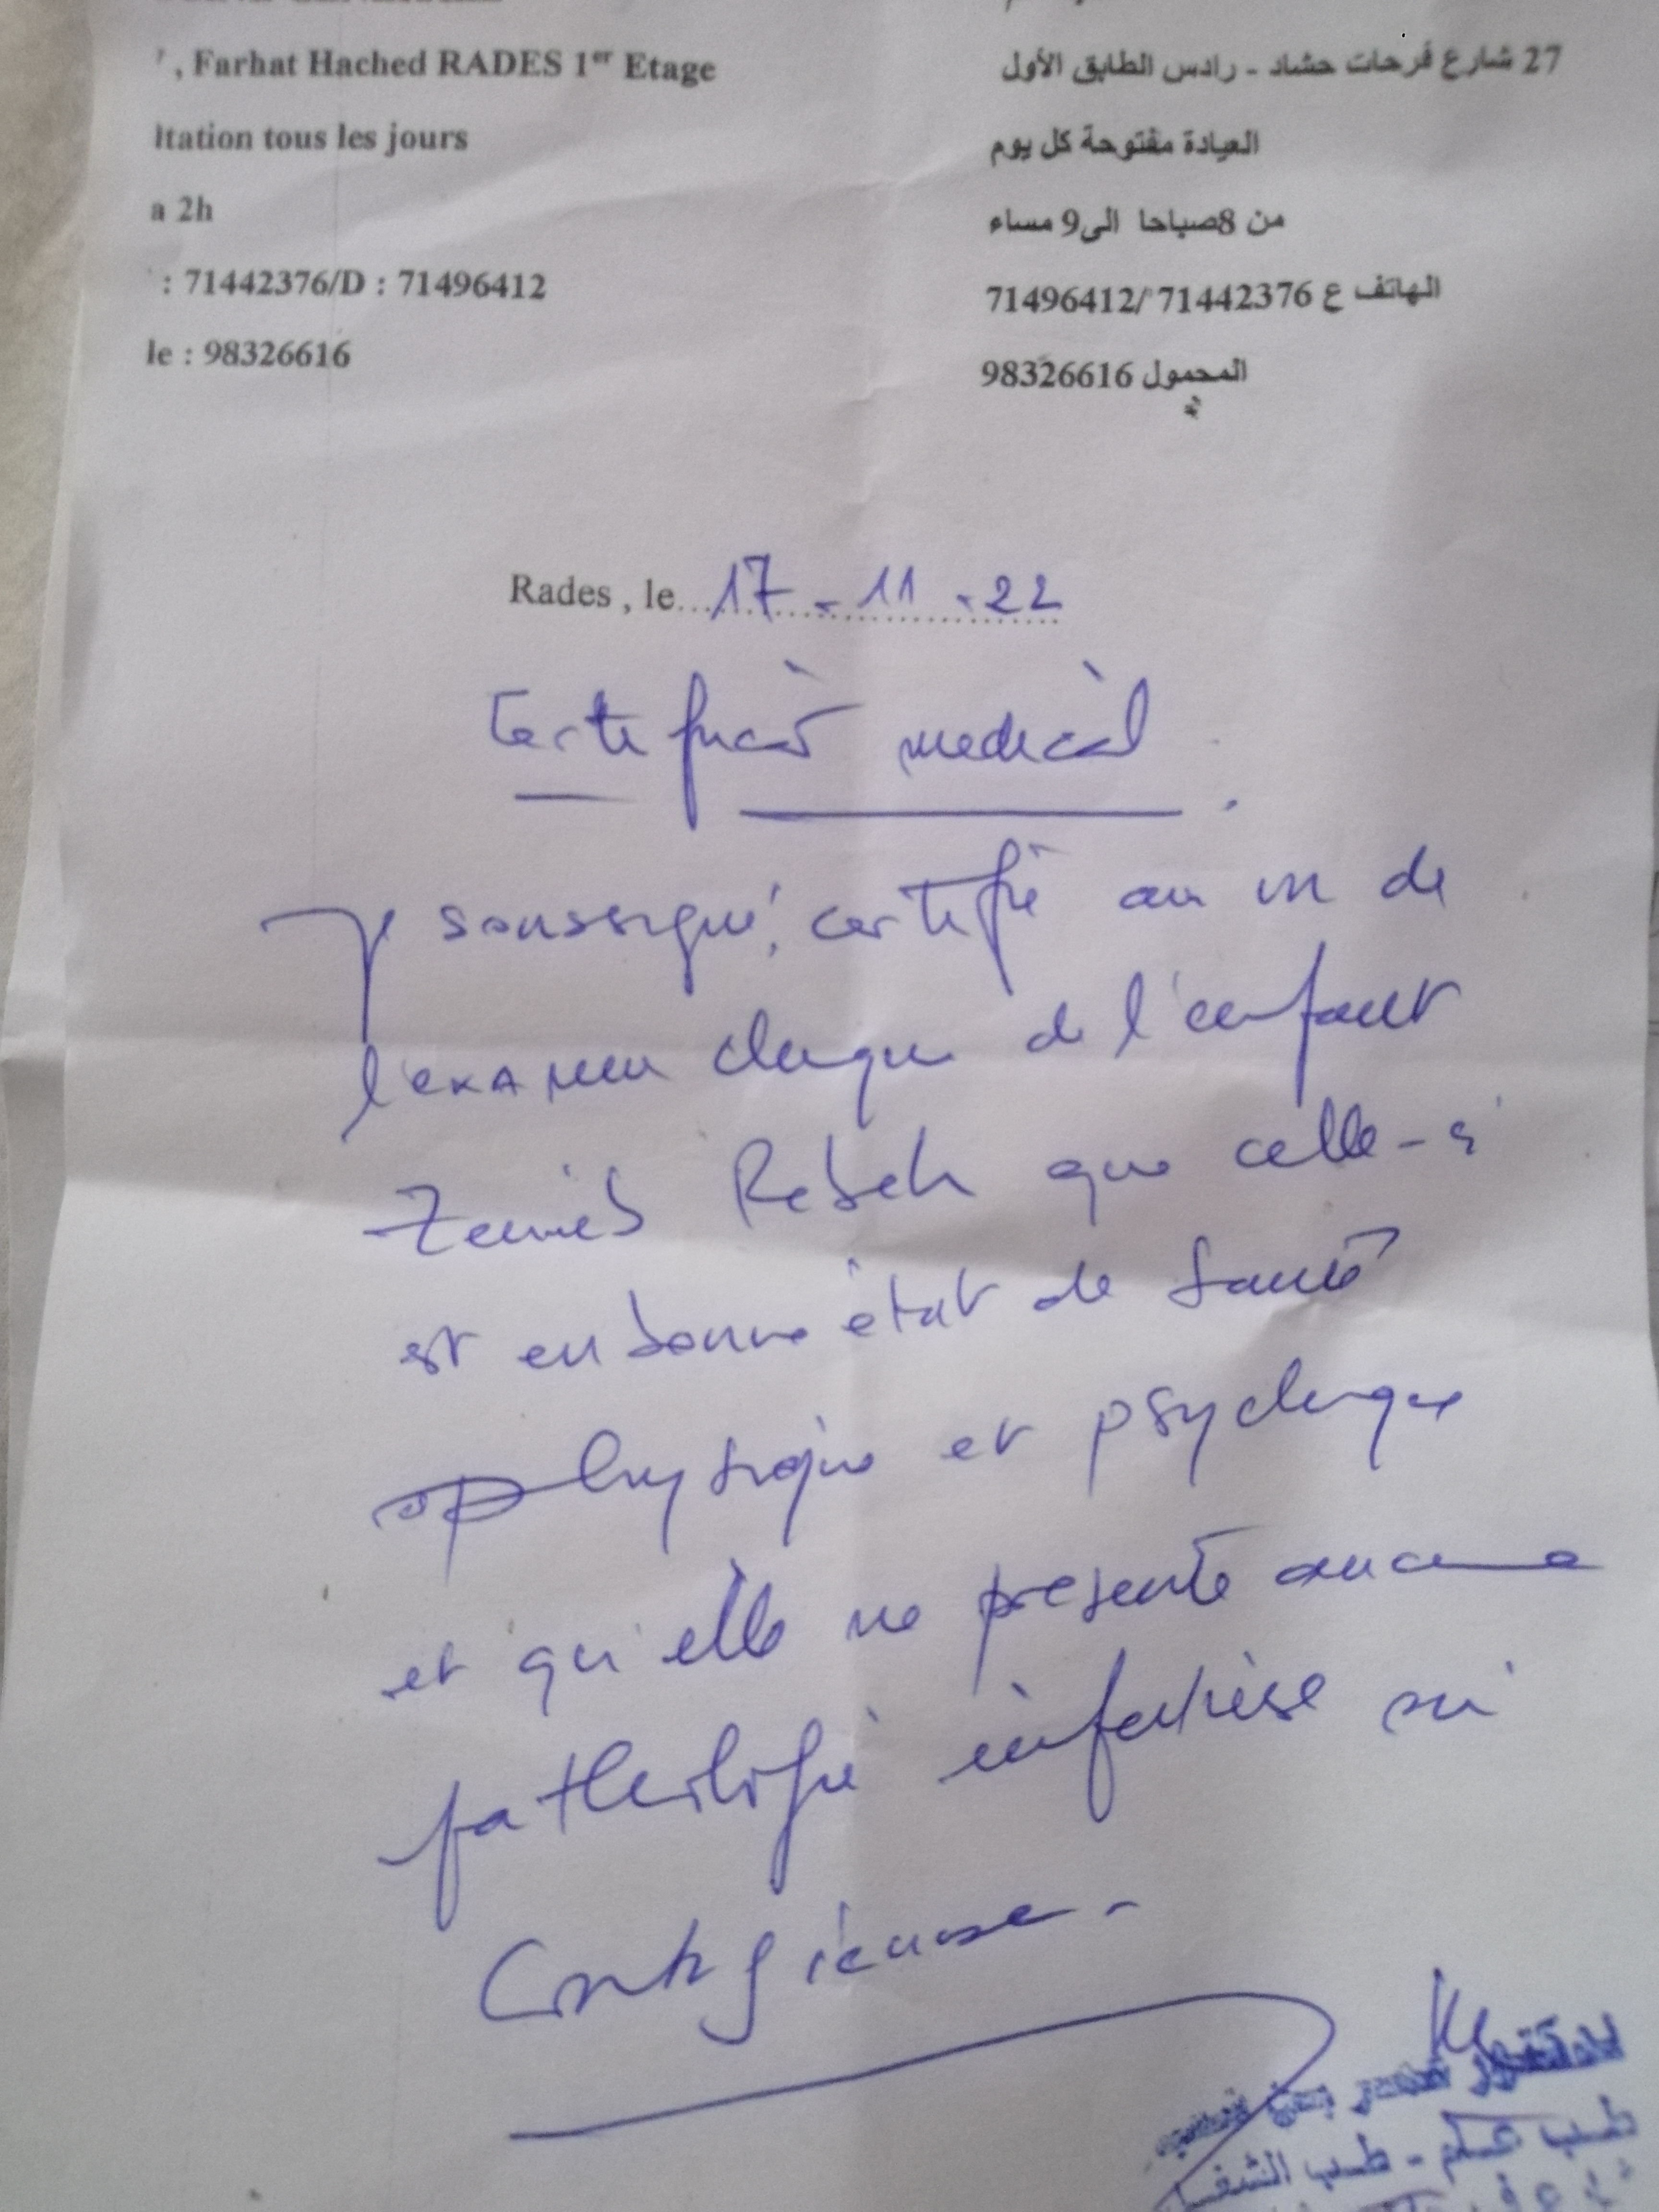 , Farhat Hached RADES 1er Etage
ltation tous les jours
a 2h
: 71442376/D : 71496412
le : 98326616
27 شارع فرحات حشاد - رادس الطابق الأول
العيادة مفتوحة كل يوم
من 8صباحا الى9 مساء
الهاتف ع 71442376 /71496412
المحمول 98326616
Rades , le 17-11-22
Certificat medical
Je soussigné, certifie au vu de
l'examen clinique de l'enfant
Zeineb Rebeh que celle-ci
est en bonne état de santé
physique et psychique
et qu'elle ne presente aucune
pathologie infectieuse ni
Contagieuse -
طب عام - طب الشغل